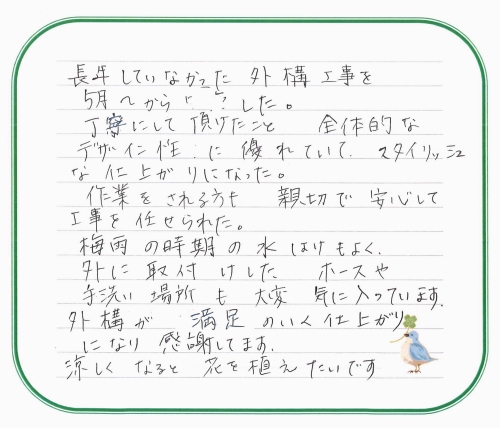 長年していなかった 外構工事を
5月〜から し?した。
丁寧にして頂けたこと 全体的な
デザイン性に優れていて、スタイリッシュ
な仕上がりになった。
作業をされる方も 親切で安心して
工事を任せられた。
梅雨の時期の水はけもよく、
外に取付けした ホースや
手洗い場所も 大変 気に入っています。
外構が 満足のいく仕上がり
になり 感謝してます。
涼しくなると 花を植えたいです